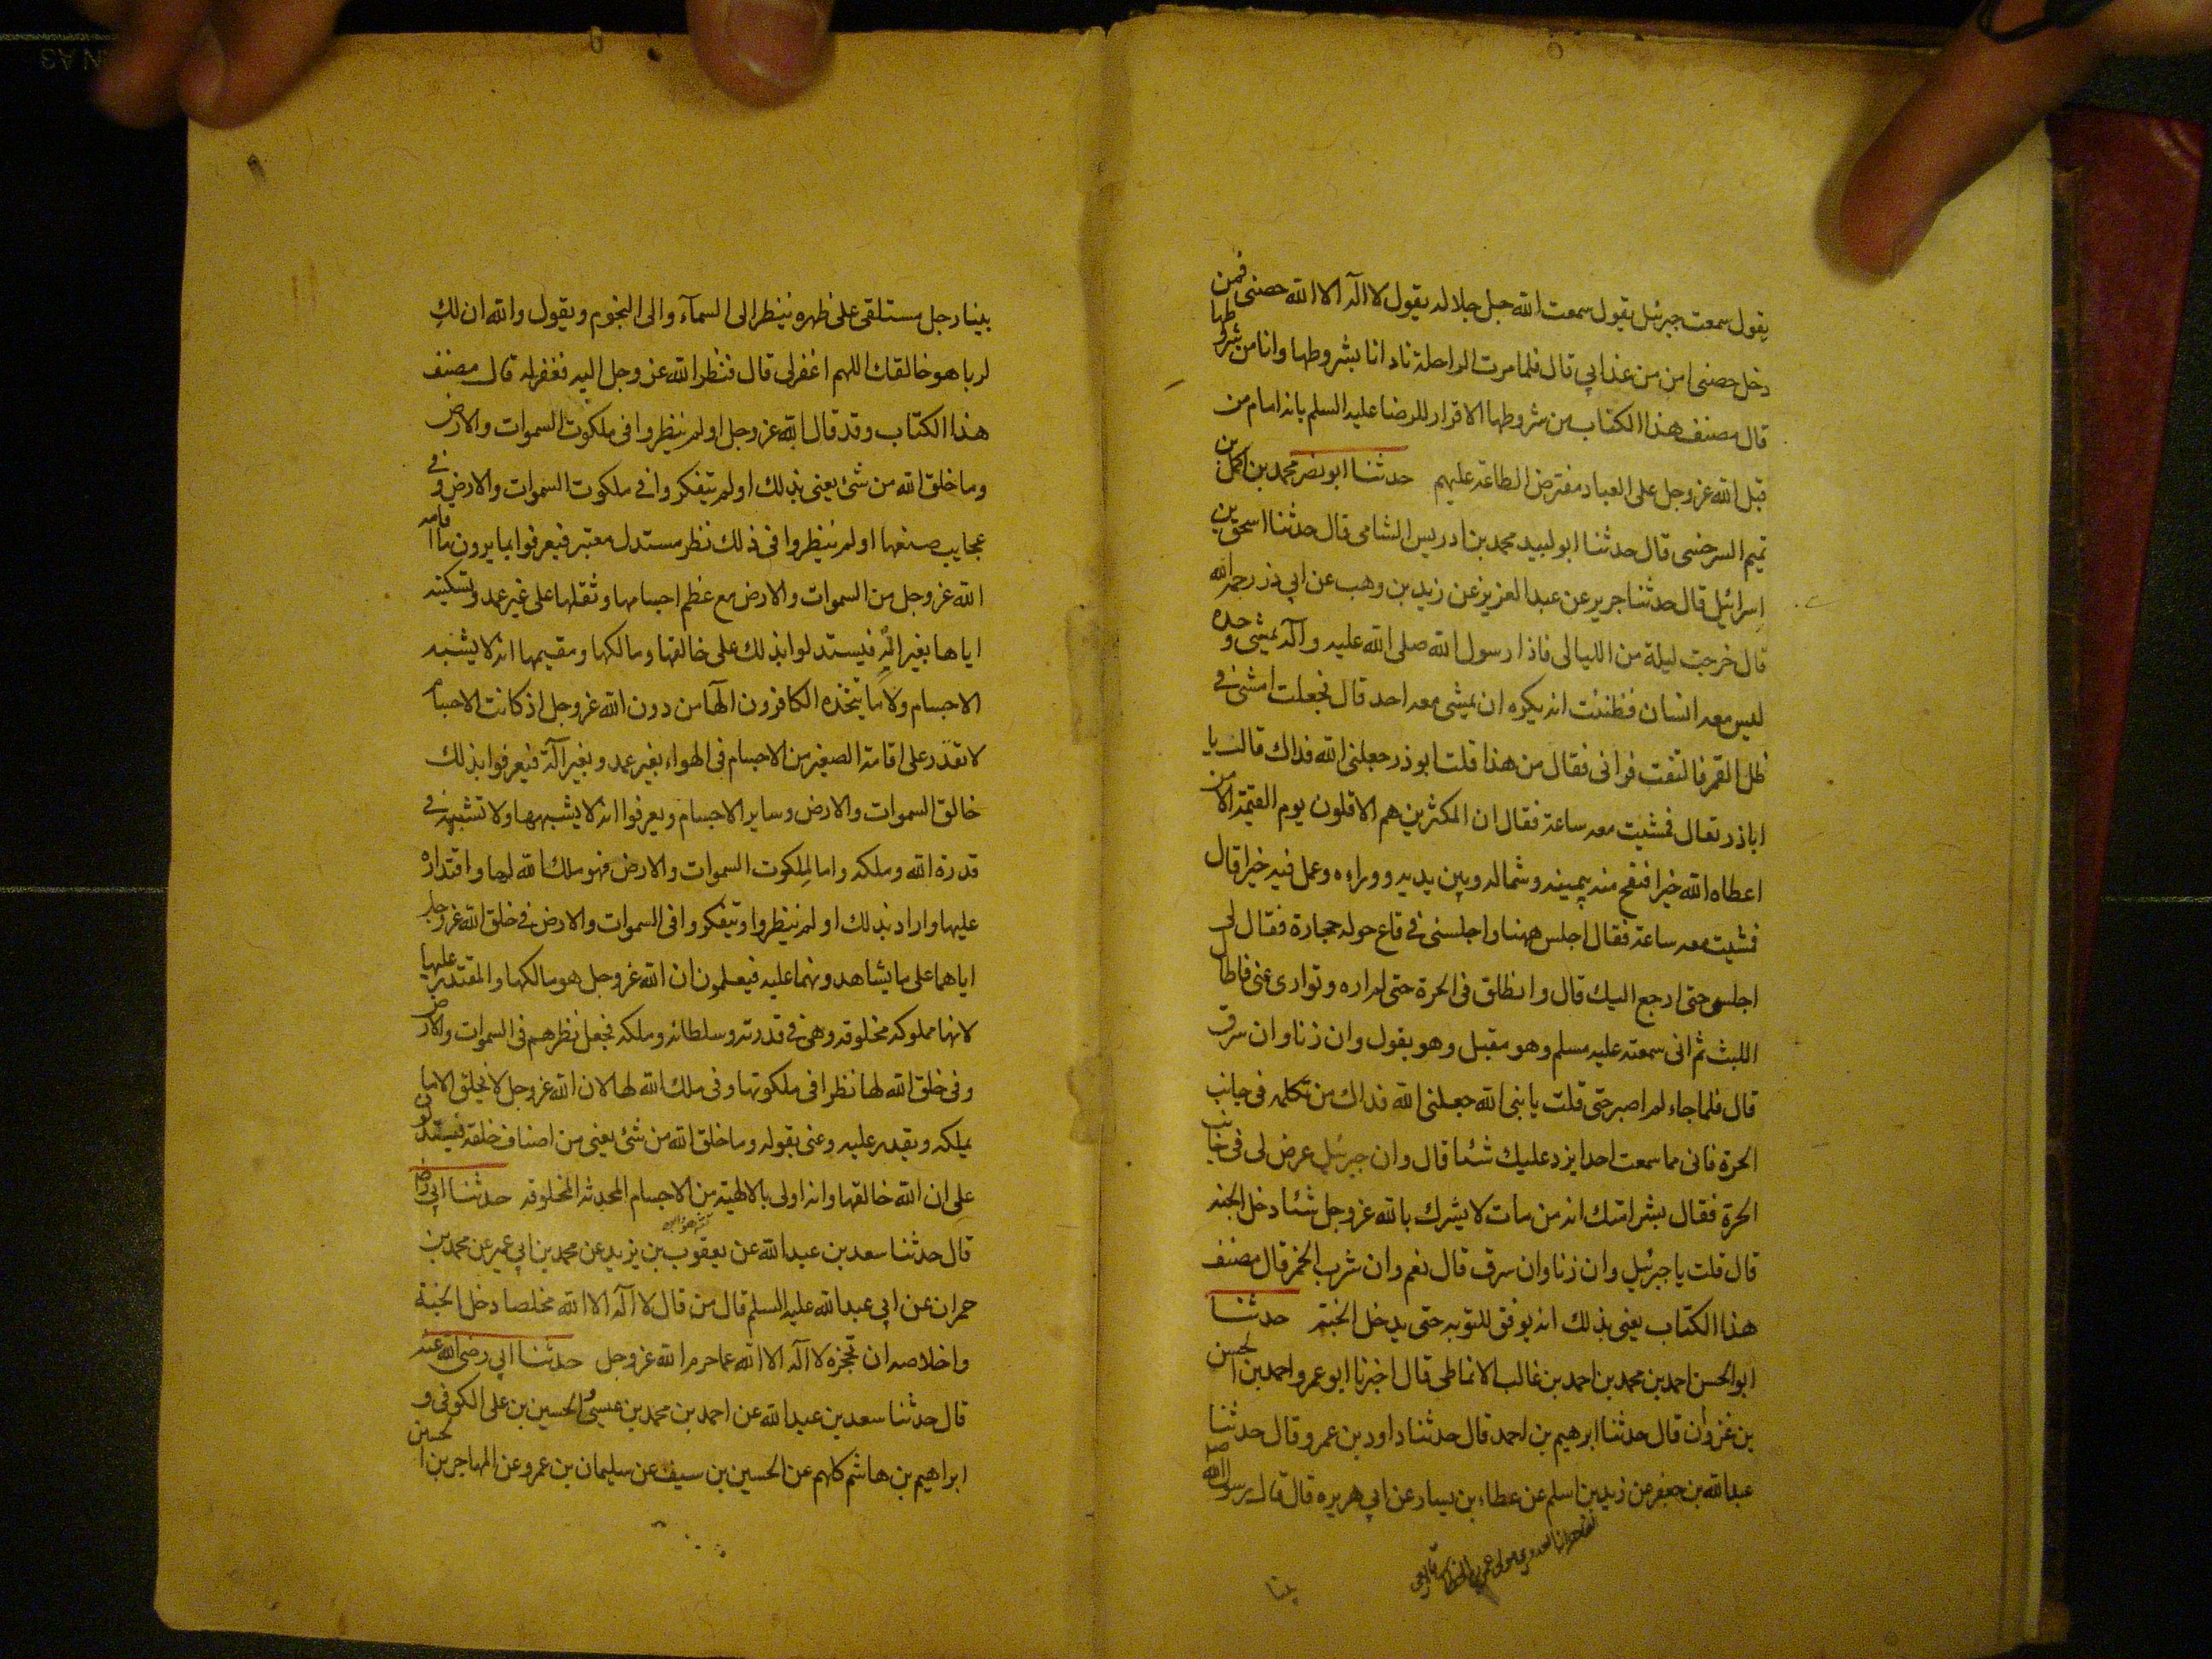 يقول سمعت جبرئيل يقول سمعت الله جل جلاله يقول لا اله الا الله حصنى فمن
دخل حصنى امن من عذابي قال فلما مرت الراحلة نادانا بشروطها وانا من شروطها
قال مصنف هذا الكتاب من شروطها الاقرار للرضا عليه السلم بانه امام من
قبل الله عز وجل على العباد مفترض الطاعة عليهم حدثنا ابو نصر محمد بن احمد بن
تميم السرخسى قال حدثنا ابو لبيد محمد بن ادريس الشامى قال حدثنا اسحق بن
اسرائيل قال حدثنا جرير عن عبد العزيز عن زيد بن وهب عن ابي ذر رحمه الله
قال خرجت ليلة من الليالى فاذا رسول الله صلى الله عليه وآله يمشى وحده
ليس معه انسان فظننت انه يكره ان يمشى معه احد قال فجعلت امشى في
ظل القمر فالتفت فرانى فقال من هذا قلت ابوذر جعلنى الله فداك قال يا
اباذر تعال فمشيت معه ساعة فقال ان المكثرين هم الاقلون يوم القيمة الا من
اعطاه الله خيرا فنفخ منه بيمينه وشماله وبين يديه ووراءه وعمل فيه خيرا قال
فمشيت معه ساعة فقال اجلس ههنا واجلسنى في قاع حوله حجارة فقال لى
اجلس حتى ارجع اليك قال وانطلق فى الحرة حتى لم اره وتوارى عنى فاطال
اللبث ثم انى سمعته عليه مسلم وهو مقبل وهو يقول وان زنا وان سرق
قال فلما جاء لم اصبر حتى قلت يا نبى الله جعلنى الله فداك من تكلمه فى جانب
الحرة فانى مما سمعت احدا يرد عليك شئا قال وان جبرئيل عرض لى فى جانب
الحرة فقال بشر امتك انه من مات لا يشرك بالله عز وجل شئا دخل الجنه
قال قلت يا جبرئيل وان زنا وان سرق قال نعم وان شرب الخمر قال مصنف
هذا الكتاب يعنى بذلك انه يوفق للتوبه حتى يدخل الجنة حدثنا
ابو الحسن احمد بن محمد بن احمد بن غالب الانماطى قال اخبرنا ابو عمرو احمد بن الحسن
بن غزوان قال حدثنا ابرهيم بن احمد قال حدثنا داود بن عمرو قال حدثنا
عبد الله بن جعفر عن زيد بن اسلم عن عطاء بن يسار عن ابي هريره قال قال رسول الله صلى
بينا
بينا رجل مستلقى على ظهره ينظر الى السمآء والى النجوم ويقول والله ان لك
لربا هو خالقك اللهم اغفرلى قال فنظر الله عز وجل اليه فغفر له قال مصنف
هذا الكتاب وقد قال الله عز وجل اولم ينظروا فى ملكوت السموات والارض
وما خلق الله من شئ يعنى بذلك اولم يتفكروا في ملكوت السموات والارض وفي
عجايب صنعها اولم ينظروا فى ذلك نظر مستدل معتبر فيعرفوا بما يرون ما اقامه
الله عز وجل من السموات والارض مع عظم اجسامها وثقلها على غير عمد وتسكينه
اياها بغير الة فيستدلوا بذلك على خالقها ومالكها ومقيمها انه لا يشبه
الاجسام ولا ما يتخذه الكافرون الها من دون الله عز وجل اذ كانت الاجسام
لا تقدر على اقامة الصغير من الاجسام فى الهواء بغير عمد وبغير آلة فيعرفوا بذلك
خالق السموات والارض وساير الاجسام ويعرفوا انه لا يشبهها ولا تشبهه في
قدرة الله وملكه واما لملكوت السموات والارض فهو ملك الله لها واقتداره
عليها واراد بذلك اولم ينظروا ويتفكروا فى السموات والارض في خلق الله عز وجل
اياهما على ما يشاهدونهما عليه فيعلمون ان الله عز وجل هو مالكها والمقتدر عليها
لانها مملوكه مخلوقه وهى في قدرته وسلطانه وملكه فجعل نظرهم فى السموات والارض
وفى خلق الله لها نظرا فى ملكوتها وفى ملك الله لها لان الله عز وجل لا يخلق الا ما
يملكه ويقدر عليه وعنى بقوله وما خلق الله من شئ يعنى من اصناف خلقه فيستدلون
على ان الله خالقها وانه اولى بالالهية من الاجسام المحدثه المخلوقه حدثنا ابي رض
قال حدثنا سعد بن عبد الله عن يعقوب بن يزيد عن محمد بن ابي عمير عن محمد بن
حمران عن ابي عبد الله عليه السلم قال من قال لا اله الا الله مخلصا دخل الجنة
واخلاصه ان تحجزه لا اله الا الله عما حرم الله عز وجل حدثنا ابي رضى الله عنه
قال حدثنا سعد بن عبد الله عن احمد بن محمد بن عيسى والحسين بن على الكوفى و
ابراهيم بن هاشم كلهم عن الحسين بن سيف عن سليمان بن عمرو عن المهاجر بن الحسين